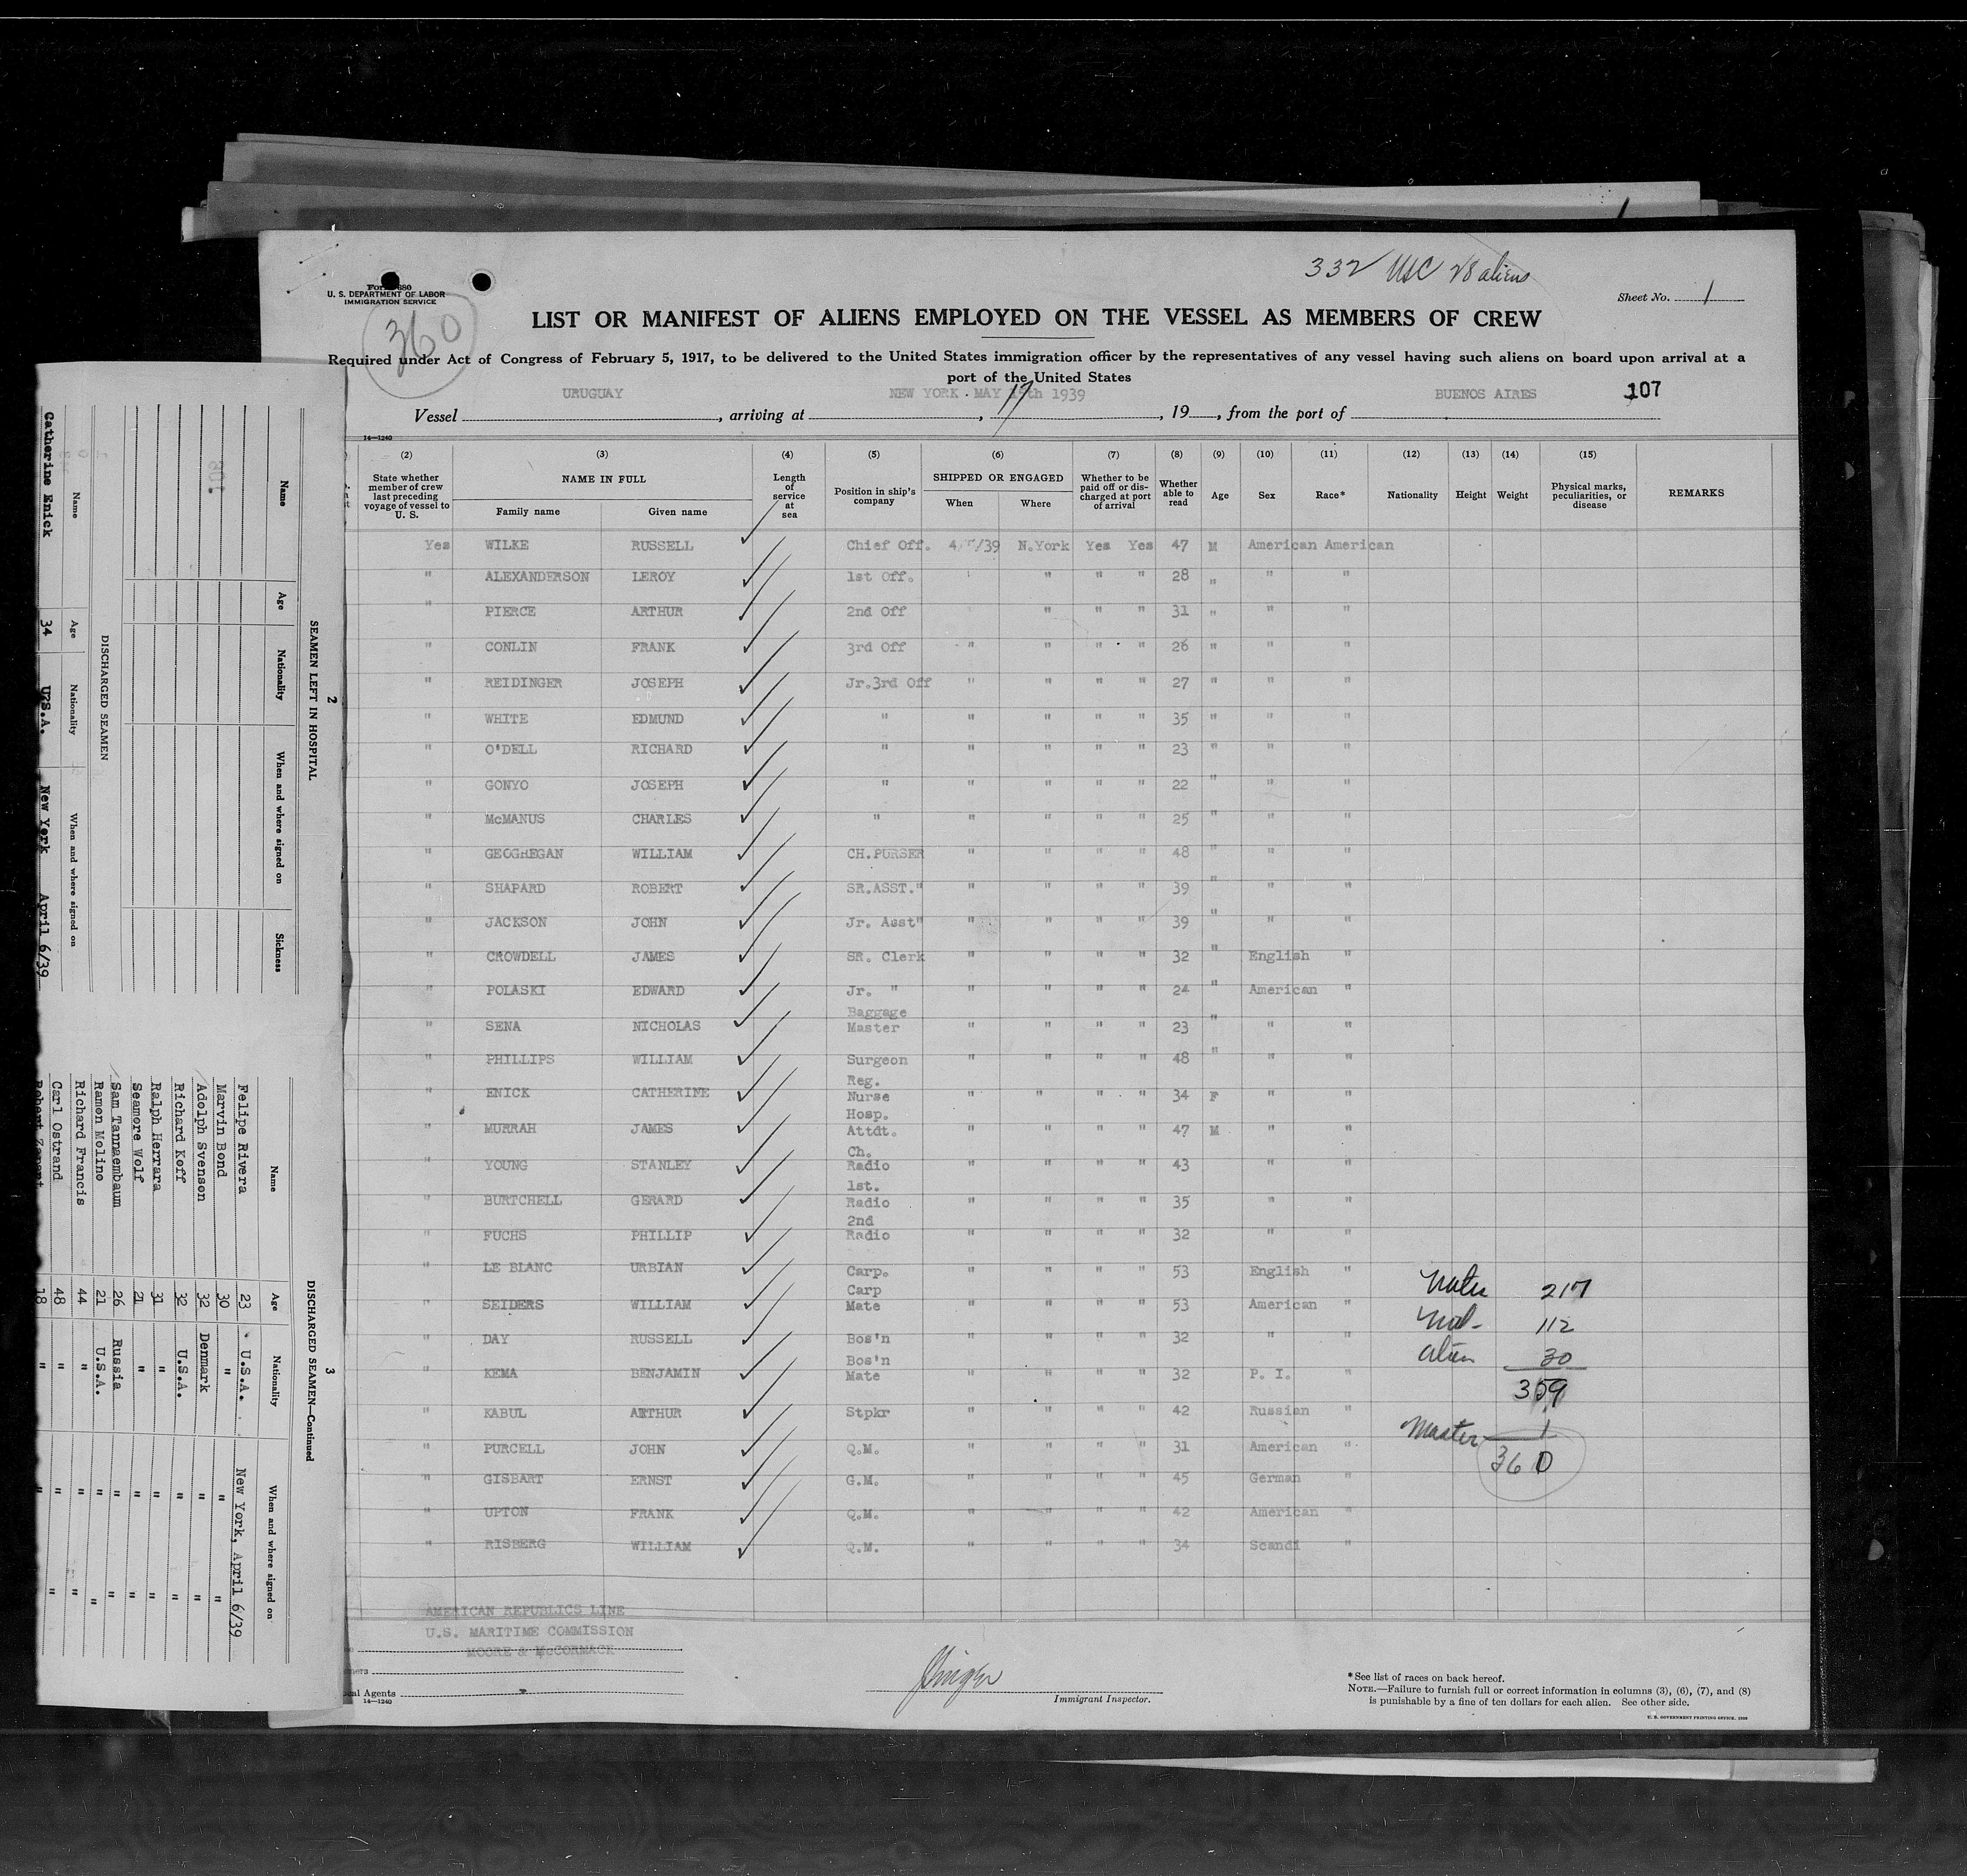 332 USC 28 aliens
Form 680
U. S. DEPARTMENT OF LABOR
IMMIGRATION SERVICE
360
Sheet No. 1
LIST OR MANIFEST OF ALIENS EMPLOYED ON THE VESSEL AS MEMBERS OF CREW
Required under Act of Congress of February 5, 1917, to be delivered to the United States immigration officer by the representatives of any vessel having such aliens on board upon arrival at a
port of the United States
Vessel URUGUAY, arriving at NEW YORK. MAY 17 th 1939, 19, from the port of BUENOS AIRES 107
14—1240
(2) (3) (4) (5) (6) (7) (8) (9) (10) (11) (12) (13) (14) (15)
State whether member of crew last preceding voyage of vessel to U. S. NAME IN FULL Family name Given name Length of service at sea Position in ship's company SHIPPED OR ENGAGED When Where Whether to be paid off or discharged at port of arrival Whether able to read Age Sex Race* Nationality Height Weight Physical marks, peculiarities, or disease REMARKS
Yes WILKE RUSSELL Chief Off. 4/ /39 N.York Yes Yes 47 M American American
" ALEXANDERSON LEROY 1st Off. " " " 28 " " "
" PIERCE ARTHUR 2nd Off " " " 31 " " "
" CONLIN FRANK 3rd Off " " " " 26 " " "
" REIDINGER JOSEPH Jr.3rd Off " " " " 27 " " "
" WHITE EDMUND " " " " " 35 " " "
" O'DELL RICHARD " " " " " 23 " " "
" GONYO JOSEPH " " " " " 22 " " "
" McMANUS CHARLES " " " " " 25 " " "
" GEOGHEGAN WILLIAM CH.PURSER " " " " 48 " " "
" SHAPARD ROBERT SR.ASST." " " " " 39 " " "
" JACKSON JOHN Jr. Asst" " " " " 39 " " "
" CROWDELL JAMES SR. Clerk " " " " 32 " English "
" POLASKI EDWARD Jr. " " " " " 24 " American "
" SENA NICHOLAS Baggage Master " " " " 23 " " "
" PHILLIPS WILLIAM Surgeon " " " " 48 " " "
" ENICK CATHERINE Reg. Nurse " " " " 34 F " "
" MURRAH JAMES Hosp. Attdt. " " " " 47 M " "
" YOUNG STANLEY Ch. Radio " " " " 43 " "
" BURTCHELL GERARD 1st. Radio " " " " 35 " "
" FUCHS PHILLIP 2nd Radio " " " " 32 " "
" LE BLANC URBIAN Carp. " " " " 53 English "
" SEIDERS WILLIAM Carp Mate " " " " 53 American "
" DAY RUSSELL Bos'n " " " " 32 " "
" KEMA BENJAMIN Bos'n Mate " " " " 32 P. I. "
" KABUL ARTHUR Stpkr " " " " 42 Russian "
" PURCELL JOHN Q.M. " " " " 31 American "
" GISBART ERNST G.M. " " " " 45 German "
" UPTON FRANK Q.M. " " " " 42 American "
" RISBERG WILLIAM Q.M. " " " " 34 Scandi "
217
112
Alien 30
359
Master 1
360
AMERICAN REPUBLICS LINE
U.S. MARITIME COMMISSION
MOORE & McCORMACK
Agents
14—1240
Immigrant Inspector.
*See list of races on back hereof.
NOTE.—Failure to furnish full or correct information in columns (3), (6), (7), and (8)
is punishable by a fine of ten dollars for each alien. See other side.
U. S. GOVERNMENT PRINTING OFFICE
2
SEAMEN LEFT IN HOSPITAL
Name Age Nationality When and where signed on Sickness
DISCHARGED SEAMEN
Name Age Nationality When and where signed on
Catherine Enick 34 U.S.A. New York April 6/39
3
DISCHARGED SEAMEN—Continued
Name Age Nationality When and where signed on
Felipe Rivera 23 U.S.A. New York, April 6/39
Marvin Bond 30 " " "
Adolph Svenson 32 Denmark " "
Richard Koff 32 U.S.A. " "
Ralph Herrara 31 " " "
Seamore Wolf 21 " " "
Sam Tannaembaum 26 Russia " "
Ramon Molino 21 U.S.A. " "
Richard Francis 44 " " "
Carl Ostrand 48 " " "
Robert 18 " "